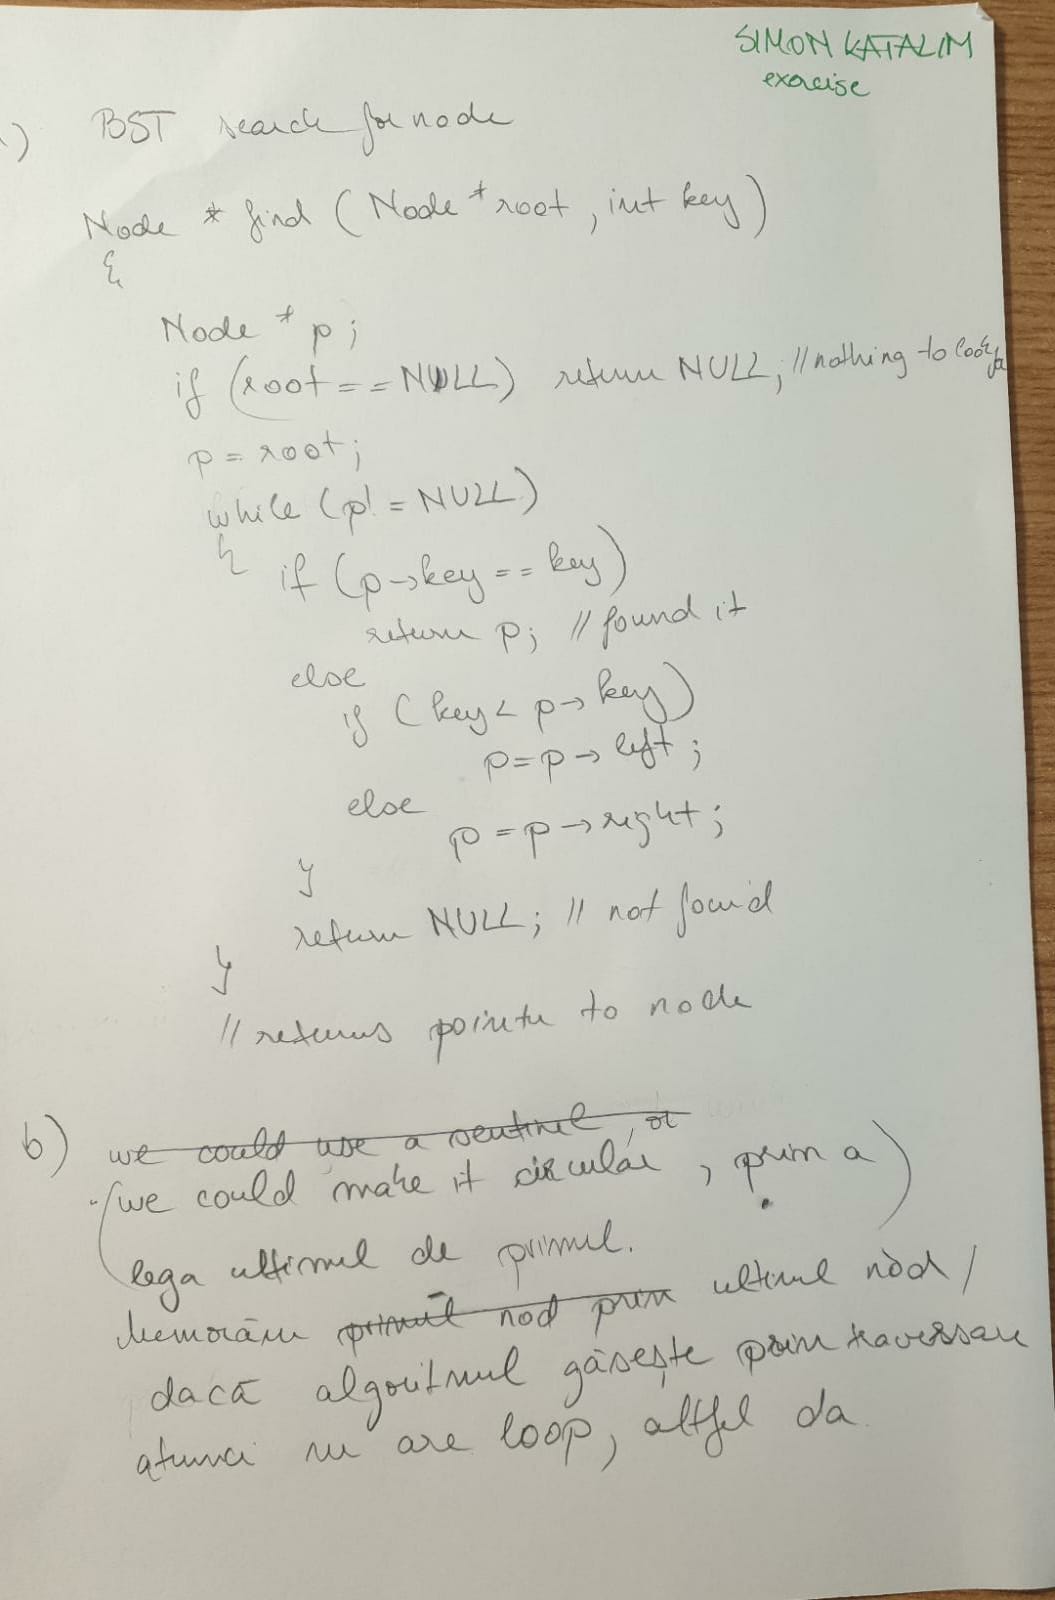 SIMON KATALIM
exercise
a) BST search for node
Node * find (Node * root, int key)
{
Node * p;
if (root == NULL) return NULL; // nothing to look
p = root;
while (p! = NULL)
{ if (p->key == key)
return p; // found it
else
if (key < p-> key)
p = p-> left;
else
p = p-> right;
}
return NULL; // not found
}
// returns pointer to node
b) we could use a sentinel, or
(we could make it circular, prin a)
lega ultimul de primul.
Memorăm primul nod prin ultimul nod/
dacă algoritmul găsește prin traversare
atunci nu are loop, altfel da.